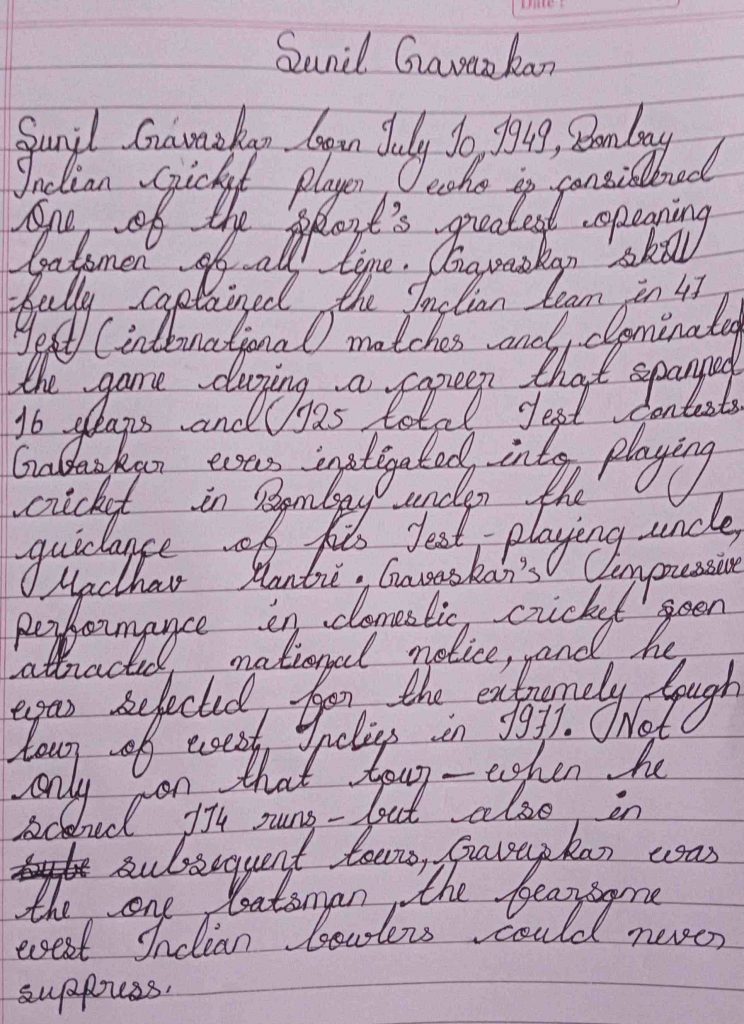 Date :
Sunil Gravaskar
Sunil Gravaskar born July 10, 1949, Bombay
Indian cricket player, who is considered
One of the sport's greatest opeaning
batsmen of all time. Gravaskar skill
-fully captained the Indian team in 47
Test (international) matches and dominated
the game during a career that spanned
16 years and 125 total Test contests.
Gravaskar was instigated into playing
cricket in Bombay under the
guidance of his Test-playing uncle,
Madhav Mantri. Gravaskar's impressive
performance in domestic cricket soon
attracted national notice, and he
was selected for the extremely tough
tour of west Indies in 1971. Not
only on that tour – when he
scored 774 runs – but also in
subsequent tours, Gravaskar was
the one batsman the fearsome
west Indian bowlers could never
suppress.